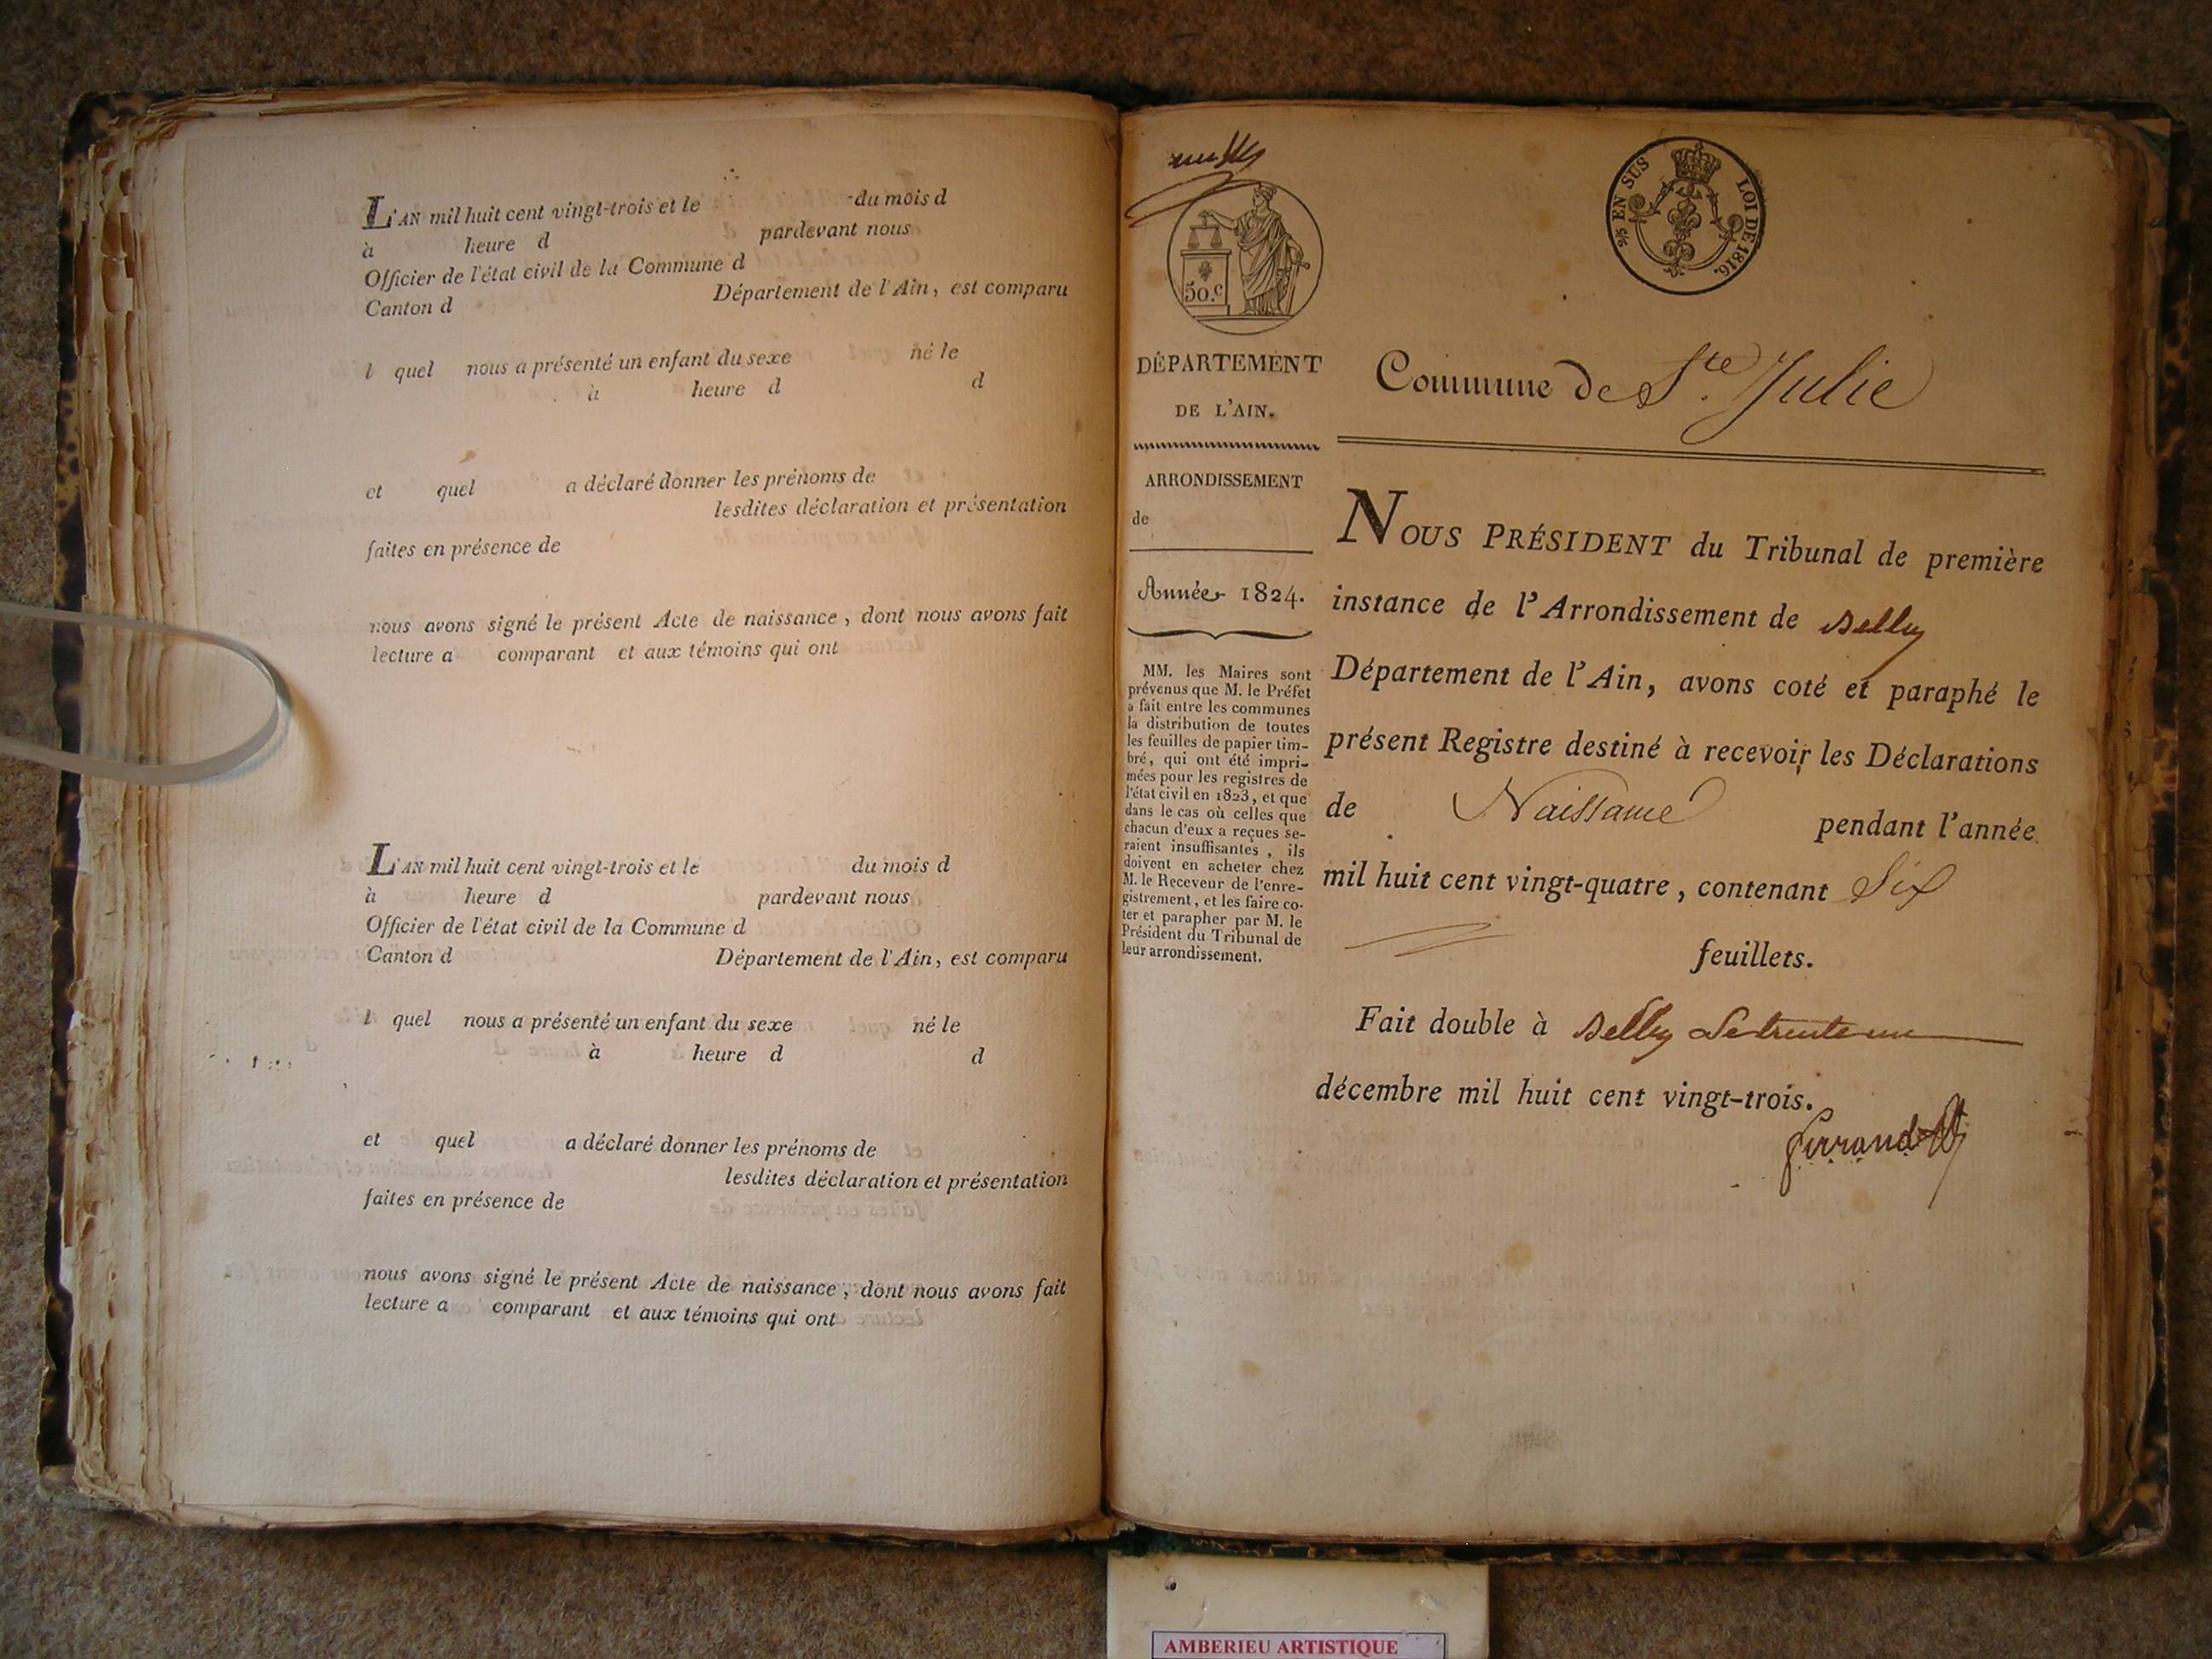 L'AN mil huit cent vingt-trois et le du mois d
à heure d pardevant nous
Officier de l'état civil de la Commune d
Canton d Département de l'Ain, est comparu
l quel nous a présenté un enfant du sexe né le
à heure d d
et quel a déclaré donner les prénoms de
lesdites déclaration et présentation
faites en présence de
nous avons signé le présent Acte de naissance, dont nous avons fait
lecture a comparant et aux témoins qui ont
L'AN mil huit cent vingt-trois et le du mois d
à heure d pardevant nous
Officier de l'état civil de la Commune d
Canton d Département de l'Ain, est comparu
l quel nous a présenté un enfant du sexe né le
à heure d d
et quel a déclaré donner les prénoms de
lesdites déclaration et présentation
faites en présence de
nous avons signé le présent Acte de naissance, dont nous avons fait
lecture a comparant et aux témoins qui ont
50.c
DÉPARTEMENT
DE L'AIN.
ARRONDISSEMENT
de
Année 1824.
MM. les Maires sont
prévenus que M. le Préfet
a fait entre les communes
la distribution de toutes
les feuilles de papier tim-
bré, qui ont été impri-
mées pour les registres de
l'état civil en 1823, et que
dans le cas où celles que
chacun d'eux a reçues se-
raient insuffisantes, ils
doivent en acheter chez
M. le Receveur de l'enre-
gistrement, et les faire co-
ter et parapher par M. le
Président du Tribunal de
leur arrondissement.
EN SUS LOI DE 1816.
Commune de Ste. Julie
NOUS PRÉSIDENT du Tribunal de première
instance de l'Arrondissement de Belley
Département de l'Ain, avons coté et paraphé le
présent Registre destiné à recevoir les Déclarations
de Naissance pendant l'année
mil huit cent vingt-quatre, contenant Six
feuillets.
Fait double à Belley Le trente un
décembre mil huit cent vingt-trois.
AMBERIEU ARTISTIQUE